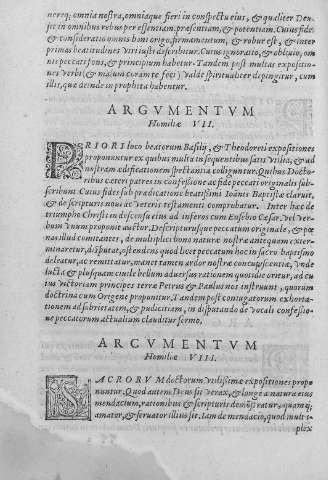 nercq; omnia nostra, omniaque fieri in conspectu eius, & qualiter Deus
sit in omnibus rebus per essentiam, presentiam, & potentiam. Cuius fides
& consideratio omnis boni origo, firmamentum, & robur est, & inter
primas beatitudines viri iusti describitur. Cuius ignoratio, & obliuio, om
nis peccati fons, & principium habetur. Tandem post multas expositio
nes verbi (& malum coram te feci) valde spiritualiter depingitur, cum
illis, quæ deinde in propheta habentur.
ARGVMENTVM
Homiliæ VII.
PRIORI loco beatorum Basilij, & Theodoreti expositiones
proponuntur ex quibus multa in sequentibus satis vtilia, & ad
nostram ædificationem spectantia colliguntur. Quibus Docto
ribus cæteri patres in confessione ac fide peccati originalis subs
cribunt. Cuius fides sub prædicatione beatissimi Ioānis Baptistæ claruit,
& de scripturis noui & veteris testamenti comprobatur. Inter hæc de
triumpho Christi in descensu eius ad inferos cum Eusebio Cæsar. vel ver
bum vnum proponit auctor. Descripturusque peccatum originale, & pœ
nas illud comitantes, de multiplici bono naturæ nostræ antequam exter
minaretur, disputat, ostendens quod licet peccatum hoc in sacro baptismo
deleatur, ac remittatur, manet tamen ardor nostræ concupiscentiæ, vnde
luctæ & plusquam ciuile bellum aduersus rationem quotidie oritur, ad cu
ius victoriam principes terræ Petrus & Paulus nos instruunt, quorum
doctrina cum Origene proponitur. Tandem post coniugatorum exhorta-
tionem ad sobrietatem, & pudicitiam, in disputando de vocali confessio-
ne peccatorum actualium clauditur sermo.
ARGVMENTVM
Homiliæ VIII.
SACRORVM doctorum vtilissimæ expositiones propo
nuntur. Quod autem Deus sit verax, & longè a natura eius
mendacium, rationibus & scripturis demōstratur, quamq;
amator, & seruator illius sit. Iam de mendacio, quod multi-
plex